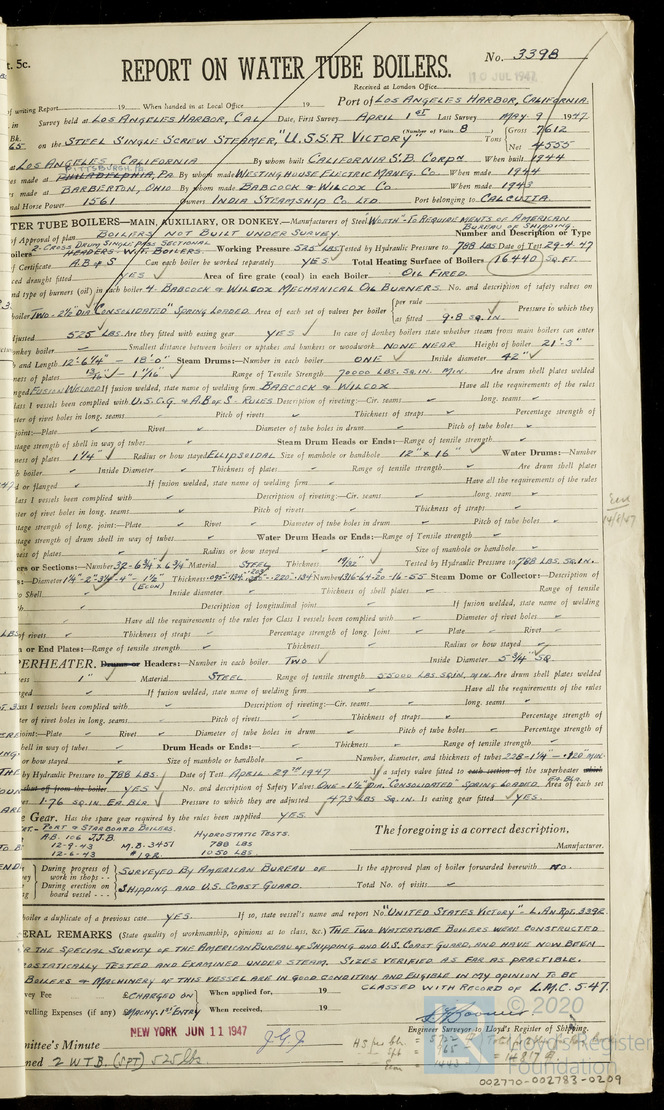 t. 5c.
No. 3398
REPORT ON WATER TUBE BOILERS.
10 JUL 1947
Received at London Office
of writing Report 19 When handed in at Local Office 19 Port of LOS ANGELES HARBOR, CALIFORNIA.
in Survey held at LOS ANGELES HARBOR, CAL. Date, First Survey APRIL 1ST Last Survey MAY 9 1947
Bk. (Number of Visits 8)
65 on the STEEL SINGLE SCREW STEAMER, "U.S.S.R VICTORY" Tons { Gross 7612
Net 4555
at LOS ANGELES CALIFORNIA By whom built CALIFORNIA S.B. CORPN When built 1944
PITTSBURGH, PA
es made at PHILADELPHIA, PA. By whom made WESTINGHOUSE ELECTRIC MANFG. CO. When made 1944
s made at BARBERTON, OHIO By whom made BABCOCK & WILCOX CO. When made 1943
al Horse Power 1561 Owners INDIA STEAMSHIP CO. LTD. Port belonging to CALCUTTA.
TER TUBE BOILERS—MAIN, AUXILIARY, OR DONKEY.—Manufacturers of Steel "WORTH"-TO REQUIREMENTS OF AMERICAN
BUREAU OF SHIPPING.
of Approval of plan BOILERS NOT BUILT UNDER SURVEY. Number and Description or Type
2-CROSS DRUM SINGLE PASS SECTIONAL
Boilers HEADERS-W.T. BOILERS Working Pressure 525 LBS Tested by Hydraulic Pressure to 788 LBS Date of Test 29-4-47
of Certificate A.B & S Can each boiler be worked separately YES Total Heating Surface of Boilers 16440 SQ. FT.
ced draught fitted YES Area of fire grate (coal) in each Boiler OIL FIRED.
nd type of burners (oil) in each boiler 4-BABCOCK & WILCOX MECHANICAL OIL BURNERS. No. and description of safety valves on
boiler TWO-2½ DIA. "CONSOLIDATED" SPRING LOADED. Area of each set of valves per boiler { per rule
as fitted 9.8 SQ. IN. Pressure to which they
adjusted 525 LBS. Are they fitted with easing gear YES In case of donkey boilers state whether steam from main boilers can enter
onkey boiler Smallest distance between boilers or uptakes and bunkers or woodwork NONE NEAR Height of boiler 21'-3"
and Length 12'-6¼" - 18'-0" Steam Drums:—Number in each boiler ONE Inside diameter 42"
ness of plates 13/16" - 1 1/16" Range of Tensile Strength 70000 LBS. SQ. IN. MIN. Are drum shell plates welded
nged FUSION WELDED If fusion welded, state name of welding firm BABCOCK & WILCOX Have all the requirements of the rules
lass I vessels been complied with U.S.C.G. & A.B of S - RULES Description of riveting:—Cir. seams long. seams
ter of rivet holes in long. seams Pitch of rivets Thickness of straps Percentage strength of
joint:—Plate Rivet Diameter of tube holes in drum Pitch of tube holes
tage strength of shell in way of tubes Steam Drum Heads or Ends:—Range of tensile strength
ness of plates 1¼" Radius or how stayed ELLIPSOIDAL Size of manhole or handhole 12" X 16" Water Drums:—Number
h boiler Inside Diameter Thickness of plates Range of tensile strength Are drum shell plates
d or flanged If fusion welded, state name of welding firm Have all the requirements of the rules
lass I vessels been complied with Description of riveting:—Cir. seams long. seam
er of rivet holes in long. seams Pitch of rivets Thickness of straps
tage strength of long. joint:—Plate Rivet Diameter of tube holes in drum Pitch of tube holes
tage strength of drum shell in way of tubes Water Drum Heads or Ends:—Range of Tensile strength
ness of plates Radius or how stayed Size of manhole or handhole
ers or Sections:—Number 32-6¾ x 6¾ Material STEEL Thickness 19/32" Tested by Hydraulic Pressure to 788 LBS. SQ. IN.
s:—Diameter 1¼"-2"-3¼"-4"-1½" (ECON) Thickness Number Steam Dome or Collector:—Description of
to Shell Inside diameter Thickness of shell plates Range of tensile
Description of longitudinal joint If fusion welded, state name of welding
Have all the requirements of the rules for Class I vessels been complied with Diameter of rivet holes
of rivets Thickness of straps Percentage strength of long. Joint Plate Rivet
n or End Plates:—Range of tensile strength Thickness Radius or how stayed
PERHEATER. Drums or Headers:—Number in each boiler TWO Inside Diameter 5¾" SQ.
ess 1" Material STEEL Range of tensile strength 55000 LBS. SQ.IN. MIN. Are drum shell plates welded
nged If fusion welded, state name of welding firm Have all the requirements of the rules
lass I vessels been complied with Description of riveting:—Cir. seams long. seams
ter of rivet holes in long. seams Pitch of rivets Thickness of straps Percentage strength of
joint:—Plate Rivet Diameter of tube holes in drum Pitch of tube holes Percentage strength of
hell in way of tubes Drum Heads or Ends:— Thickness Range of tensile strength
or how stayed Size of manhole or handhole Number, diameter, and thickness of tubes 228-1¼" - .120" MIN.
by Hydraulic Pressure to 788 LBS. Date of Test APRIL 29TH 1947 Is a safety valve fitted to each section of the superheater which
EA. BLR.
shut off from the boiler YES No. and description of Safety Valves ONE-1½" DIA. "CONSOLIDATED" SPRING LOADED Area of each set
1.76 SQ. IN EA. BLR. Pressure to which they are adjusted 473 LBS SQ. IN. Is easing gear fitted YES.
e Gear. Has the spare gear required by the rules been supplied YES.
PORT & STARBOARD BOILERS. HYDROSTATIC TESTS. The foregoing is a correct description,
A.B. 106 J.J.B.
12-9-43 M.B. 3451 788 LBS
12-6-43 1050 LBS. Manufacturer.
During progress of work in shops - - } SURVEYED BY AMERICAN BUREAU OF Is the approved plan of boiler forwarded herewith NO.
During erection on board vessel - - - } SHIPPING AND U.S. COAST GUARD. Total No. of visits
boiler a duplicate of a previous case YES. If so, state vessel's name and report No "UNITED STATES VICTORY" - L.AN. RPT. 3392
ERAL REMARKS (State quality of workmanship, opinions as to class, &c.) THE TWO WATERTUBE BOILERS WERE CONSTRUCTED
R THE SPECIAL SURVEY OF THE AMERICAN BUREAU OF SHIPPING AND U.S. COAST GUARD, AND HAVE NOW BEEN
OSTATICALLY TESTED AND EXAMINED UNDER STEAM. SIZES VERIFIED AS FAR AS PRACTIBLE.
BOILERS & MACHINERY OF THIS VESSEL ARE IN GOOD CONDITION AND ELIGIBLE IN MY OPINION TO BE
CLASSED WITH RECORD OF L.M.C. 5-47.
vey Fee £CHARGED ON When applied for, 19
velling Expenses (if any) £MACHY. 1ST ENTRY When received, 19
Engineer Surveyor to Lloyd's Register of Shipping.
NEW YORK JUN 11 1947
mittee's Minute
ned 2 W.T.B. (SPT) 525 lbs
© 2020
Lloyd's Register
Foundation
002770-002783-0209